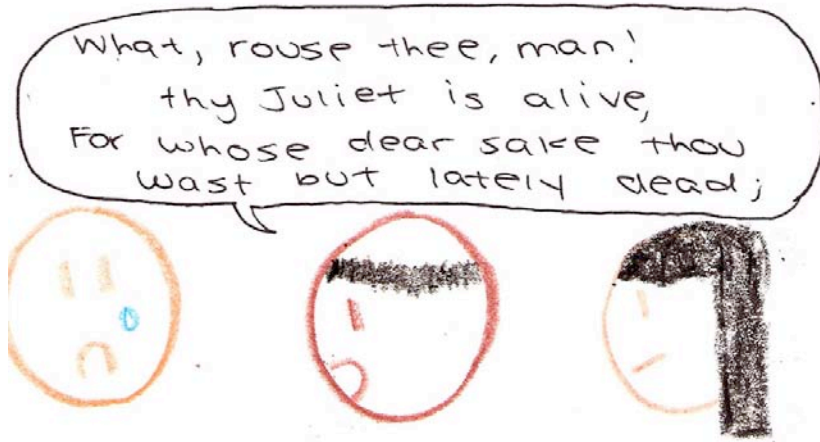 What, rouse thee, man!
thy Juliet is alive,
For whose dear sake thou
wast but lately dead;